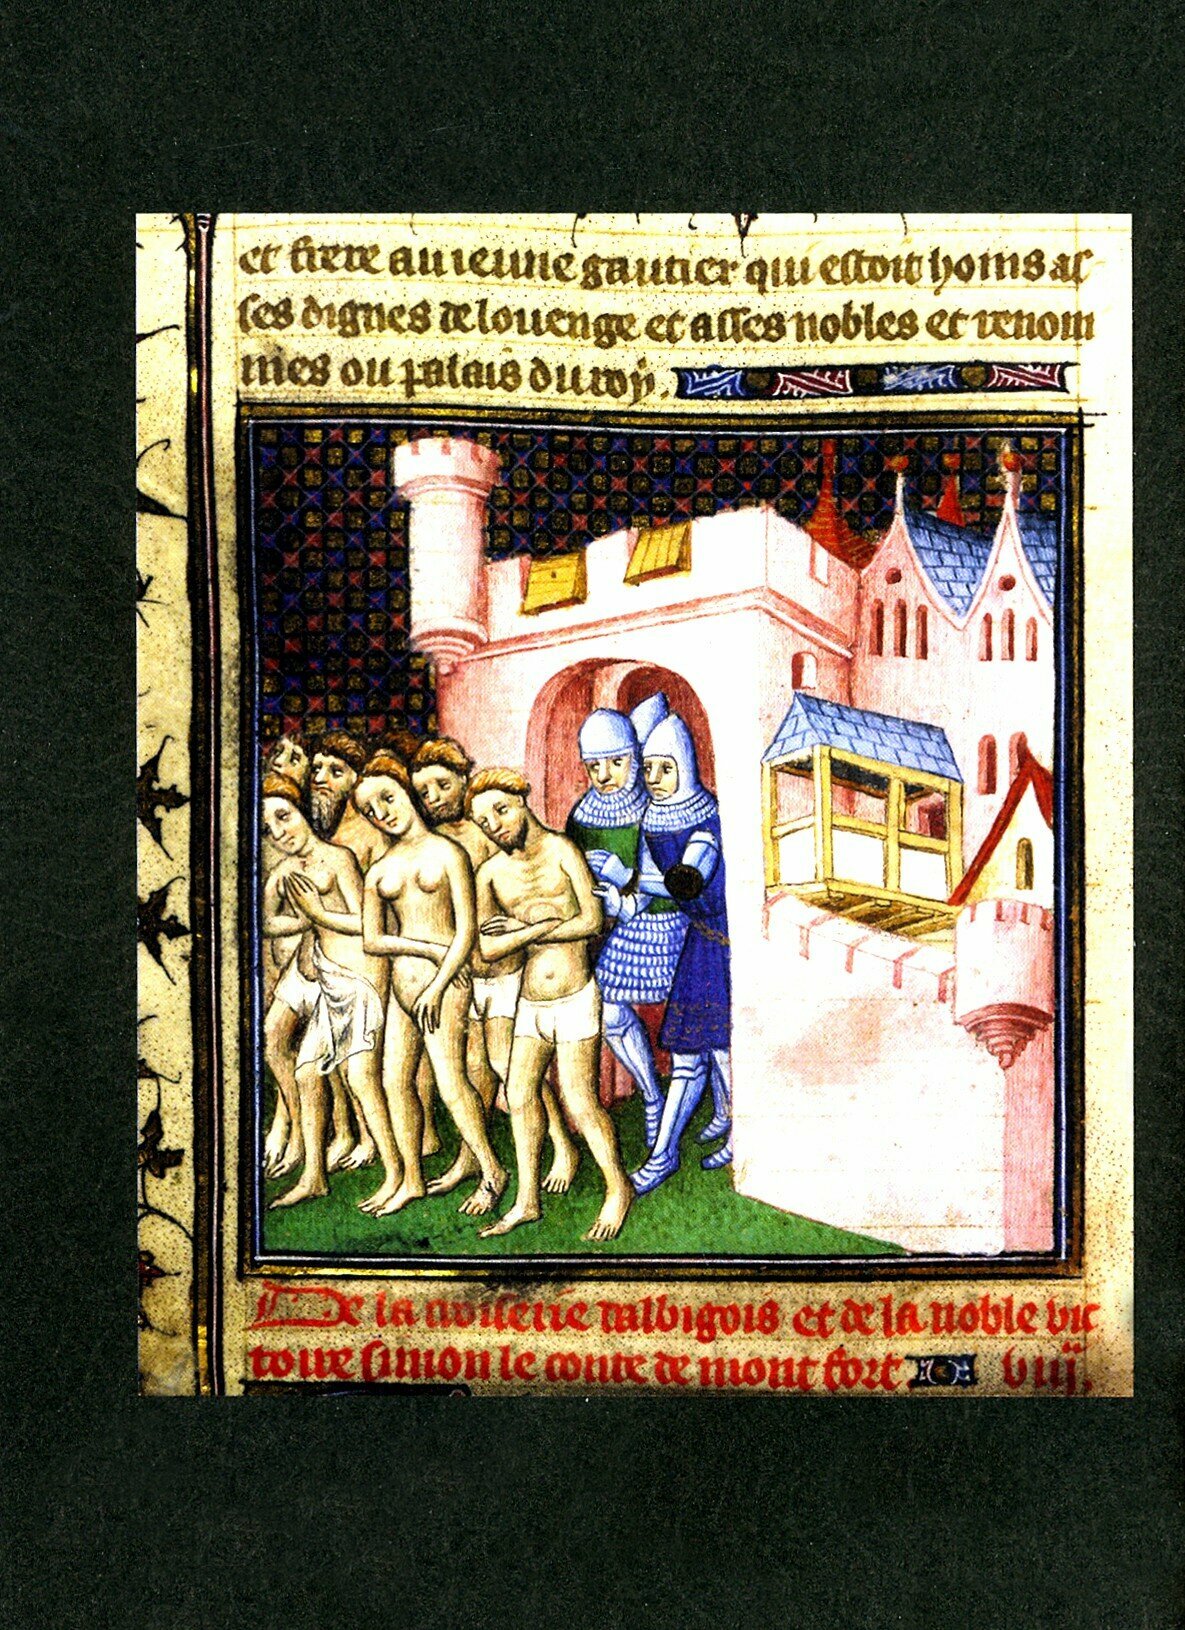 et frere au ieune gautier qui estoit homs as
ses dignes de louenge et asses nobles et renom
mes ou palais du roy.
De la croiserie dalbigois et de la noble vic
toire simon le conte de mont fort viii.